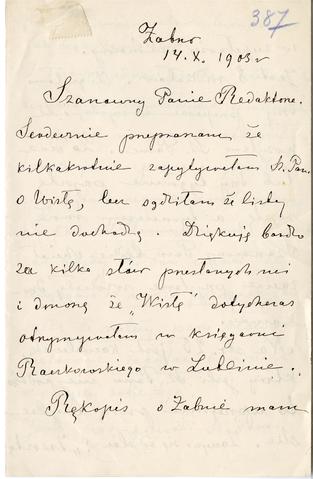 387
Żabno
14.X. 1903 r
Szanowny Panie Redaktorze.
Serdecznie przepraszam że
kilkakrotnie zapytywałam Sz. Pana
o Wisłę, lecz sądziłam że listy
nie dochodzą. Dziękuję bardzo
za kilka słów przesłanych mi
i donoszę że „Wisłę” dotychczas
otrzymywałam w księgarni
Raczkowskiego w Lublinie.
Rękopis o Żabnie mam